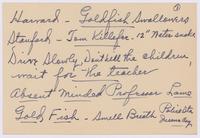 ①
Harvard - Goldfish Swallowers
Stanford - Tom Killefer - 12" Water snake
Drive Slowly, Don't kill the children,
wait for the teacher
Absent Minded Professor Lane
Gold Fish - Small Breath